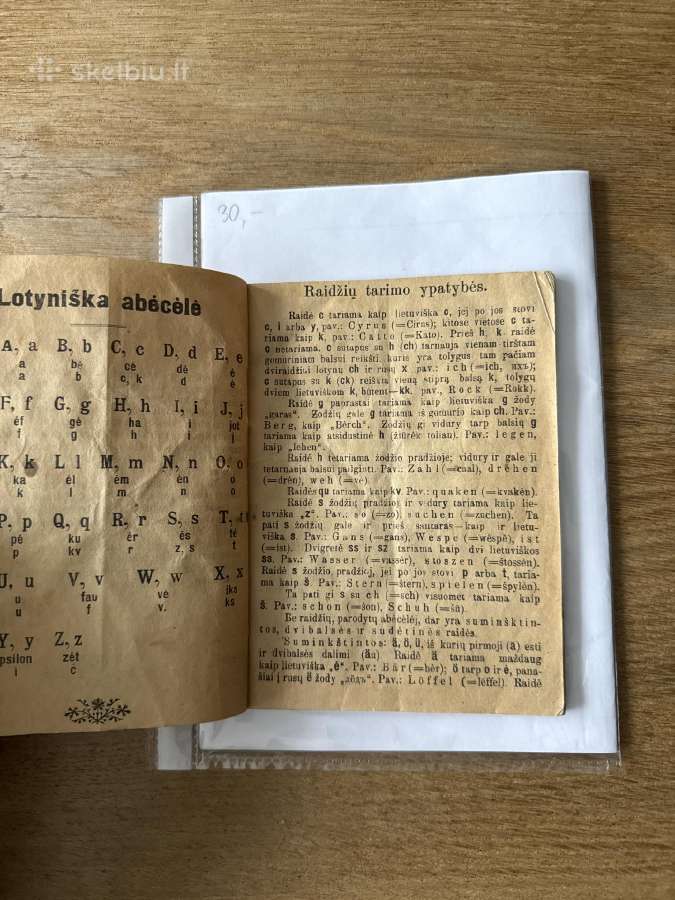 skelbiu.lt
30,-
Lotyniška abėcėlė
A, a B, b C, c D, d E, e
a bė cė dė ė
a b c, k d ė
F, f G, g H, h I, i J, j
ėf gė ha i jot
f g h i j
K, k L l M, m N, n O. o
ka ėl ėm ėn o
k l m n o
P, p Q, q R, r S, s T, t
pė ku ėr ės tė
p kv r z, s t
U, u V, v W, w X, x
u fau vė iks
u f v. ks
Y, y Z, z
psilon zėt
i c
Raidžių tarimo ypatybės.
Raidė c tariama kaip lietuviška c, jej po jos stovi
e, i arba y, pav.: Cyrus (=Cirus); kitose vietose c ta-
riama kaip k, pav.: Caito (=Kato). Prieš h, k. raidė
c netariama. c sutapus su h (ch) tarnauja vienam tirštam
gomuriniam balsui reikšti, kuris yra tolygus tam pačiam
dviraidžiui lotynų ch ir rusų x pav.: ich (=ich, ихъ);
c sutapus su k (ck) reiškia vieną stiprą balsą k, tolygų
dviem lietuviškom k, būtent—kk. pav., Rock (=Rokk).
Raidė g paprastai tariama kaip lietuviška g žody
„garas“. Žodžių gale g tariama iš gomurio kaip ch. Pav.:
Berg, kaip „Bėrch“. Žodžių gi vidury tarp balsių g
tariama kaip atsidustinė h (žiūrėk toliau). Pav.: legen,
kaip „lehen“.
Raidė h tetariama žodžio pradžioje; vidury ir gale ji
tetarnauja balsui pailginti. Pav.: Zahl (=caal), drehen
(=drėn), weh (=vė)
Raidės qu tariama kaip kv. Pav.: quaken (=kvakėn).
Raidė s žodžių pradžioj ir vidury tariama kaip lie-
tuviška „z“. Pav.: so (=zo), suchen (=zuchen). Ta
pati s žodžių gale ir prieš sautaras—kaip ir lietu-
viška s. Pav.: Gans (=gans), Wespe (=wėspė), ist
(=ist). Dvigretė ss ir sz tariama kaip dvi lietuviškos
ss. Pav.: Wasser (=vassėr), stoszen (=štossėn).
Raidė s žodžio, pradžioj, jei po jos stovi p arba t, taria-
ma kaip š. Pav.: Stern (=štern), spielen (=špylėn).
Ta pati gi s su ch (=sch) visuomet tariama kaip
š. Pav.: schon (=šon), Schuh (=šū).
Be raidžių, parodytų abėcėlėj, dar yra suminkštin-
tos, dvibalsės ir sudėtinės raidės.
Suminkštintos: ä, ö, ü, iš kurių pirmoji (ä) esti
ir dvibalsės dalimi (äu) Raidė ä tariama maždaug
kaip lietuviška „ė“. Pav.: Bär (=bėr); ö tarp o ir ė, pana-
šiai į rusų ё žody „лёдъ“. Pav.: Löffel (=lėffel). Raidė